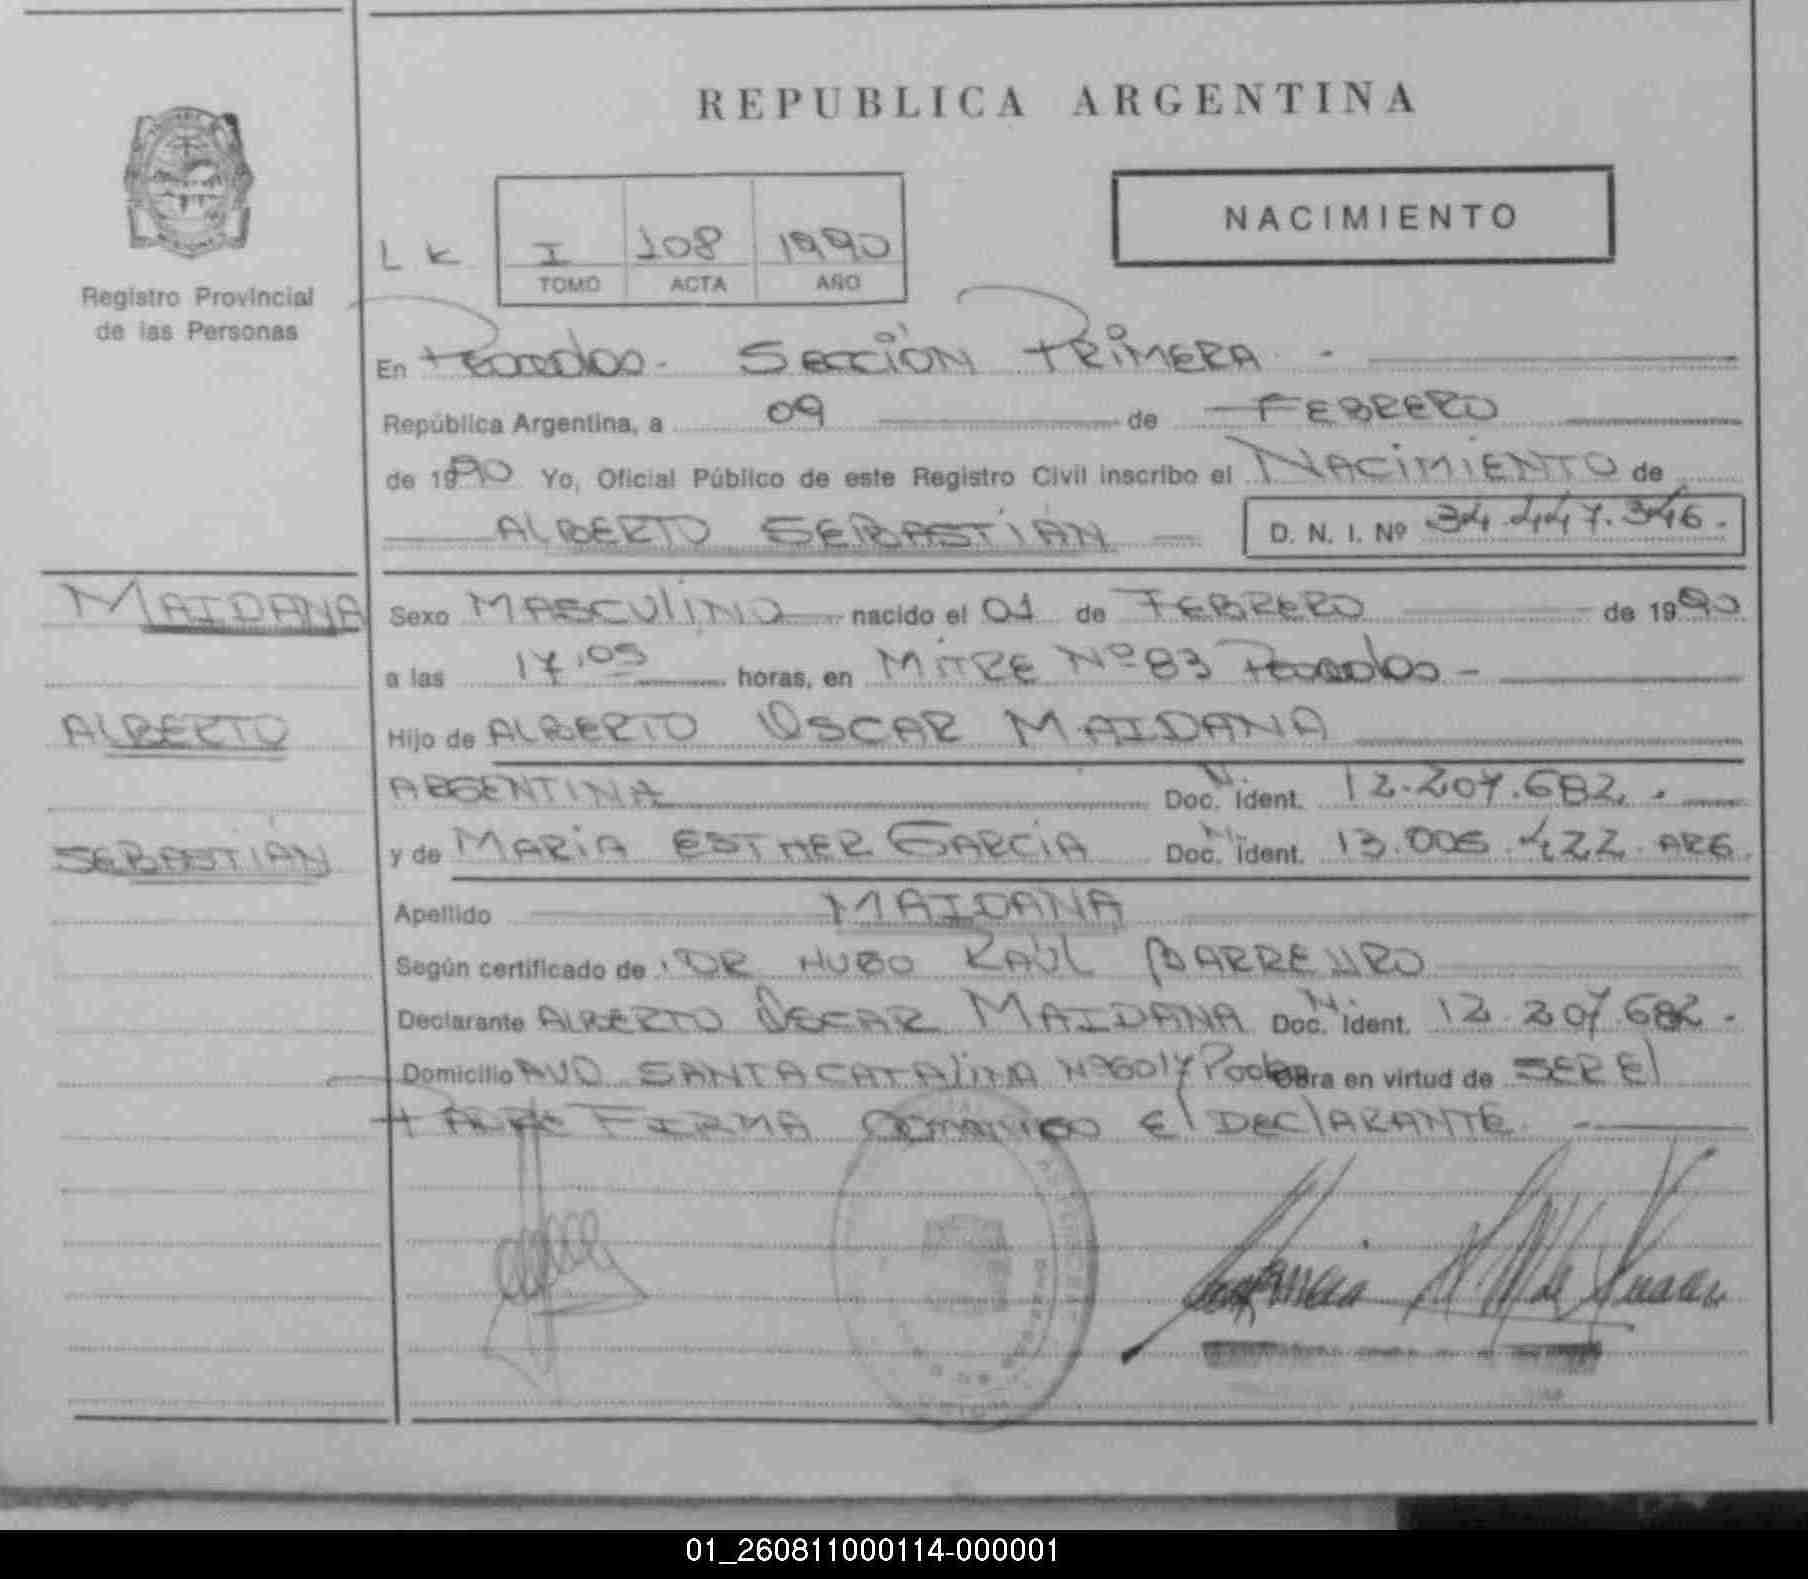 REPUBLICA ARGENTINA
NACIMIENTO
Registro Provincial
de las Personas
L K
I 108 1990
TOMO ACTA AÑO
En Posadas - SECCIÓN PRIMERA -
República Argentina, a 09 de FEBRERO
de 1990 Yo, Oficial Público de este Registro Civil inscribo el NACIMIENTO de
ALBERTO SEBASTIÁN D. N. I. Nº 34.447.346.
MAIDANA
ALBERTO
SEBASTIÁN
Sexo MASCULINO nacido el 01 de FEBRERO de 1990
a las 17,05 horas, en MITRE Nº 83 Posadas -
Hijo de ALBERTO OSCAR MAIDANA
ARGENTINA Doc. N. Ident. 12.207.682. -
y de MARÍA ESTHER GARCÍA Doc. N. Ident. 13.005.422. ARG.
Apellido MAIDANA
Según certificado de DR HUGO RAÚL
Declarante ALBERTO OSCAR MAIDANA Doc. N. Ident. 12.207.682 -
Domicilio AVD. SANTA CATALINA Nº 6017 Obra en virtud de SER El
PADRE FIRMA El DEClARANTE. -
01_260811000114-000001